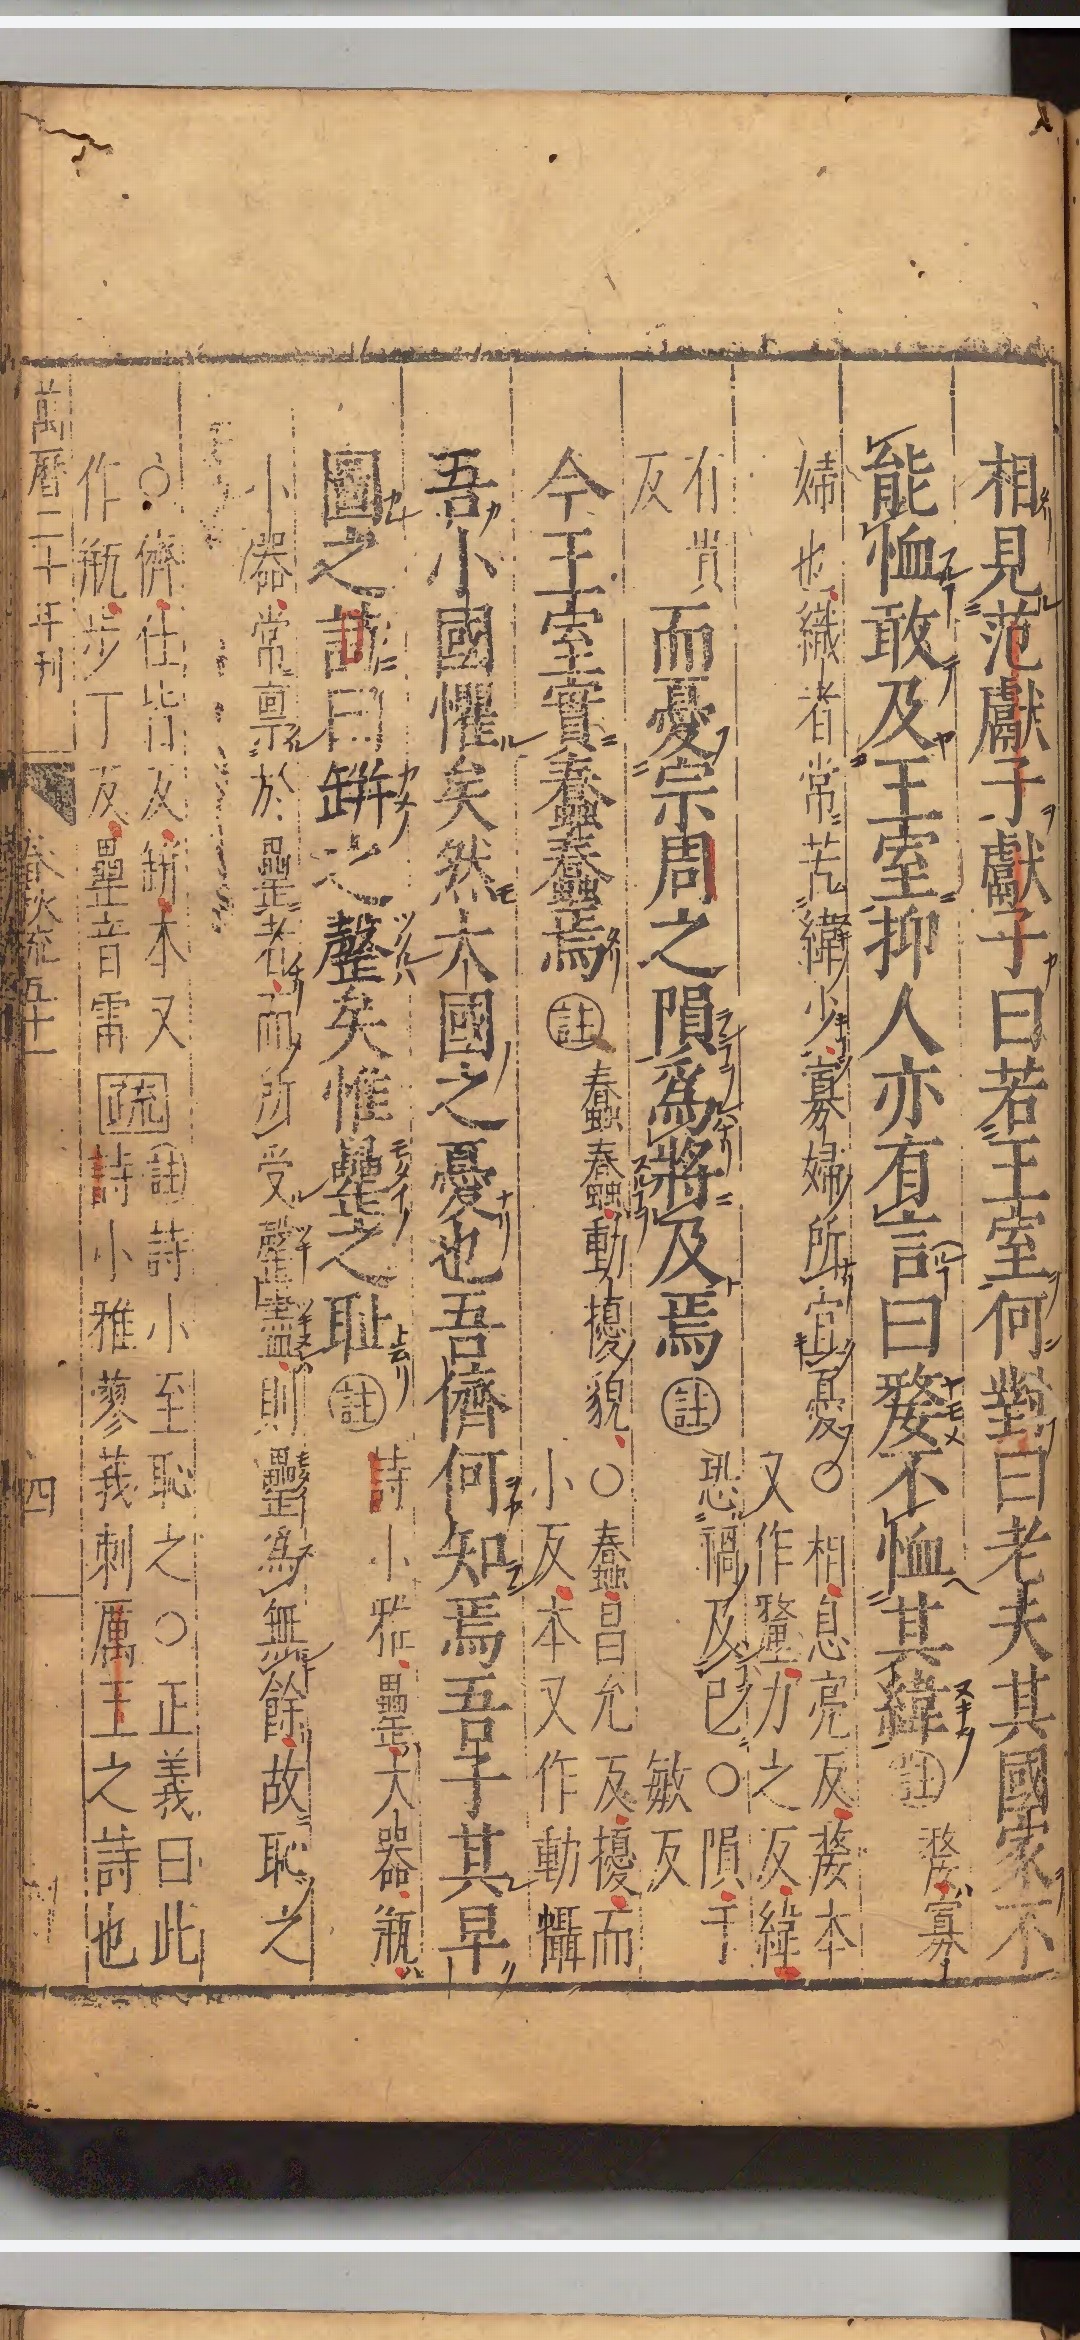 相見范獻子獻子曰若王室何對曰老夫其國家不
能恤敢及王室抑人亦有言曰嫠不恤其緯註嫠寡
婦也織者常苦緯少寡婦所宜憂○相息亮反嫠本
又作釐力之反緯
有貴反
而憂宗周之隕爲將及焉註恐禍及己○隕于
敏反
今王室實蠢蠢焉註蠢蠢動擾貌○蠢昌允反擾而
小反本又作動攝
吾小國懼矣然大國之憂也吾儕何知焉吾子其早
圖之詩曰缾之罄矣惟罍之恥註詩小雅罍大器瓶
小器常稟於罍者而所受罄盡則罍爲無餘故恥之
○儕仕皆反缾本又
作瓶步丁反罍音雷疏註詩小至恥之○正義曰此
詩小雅蓼莪刺厲王之詩也
萬曆二十年刊
春秋疏五十一
四